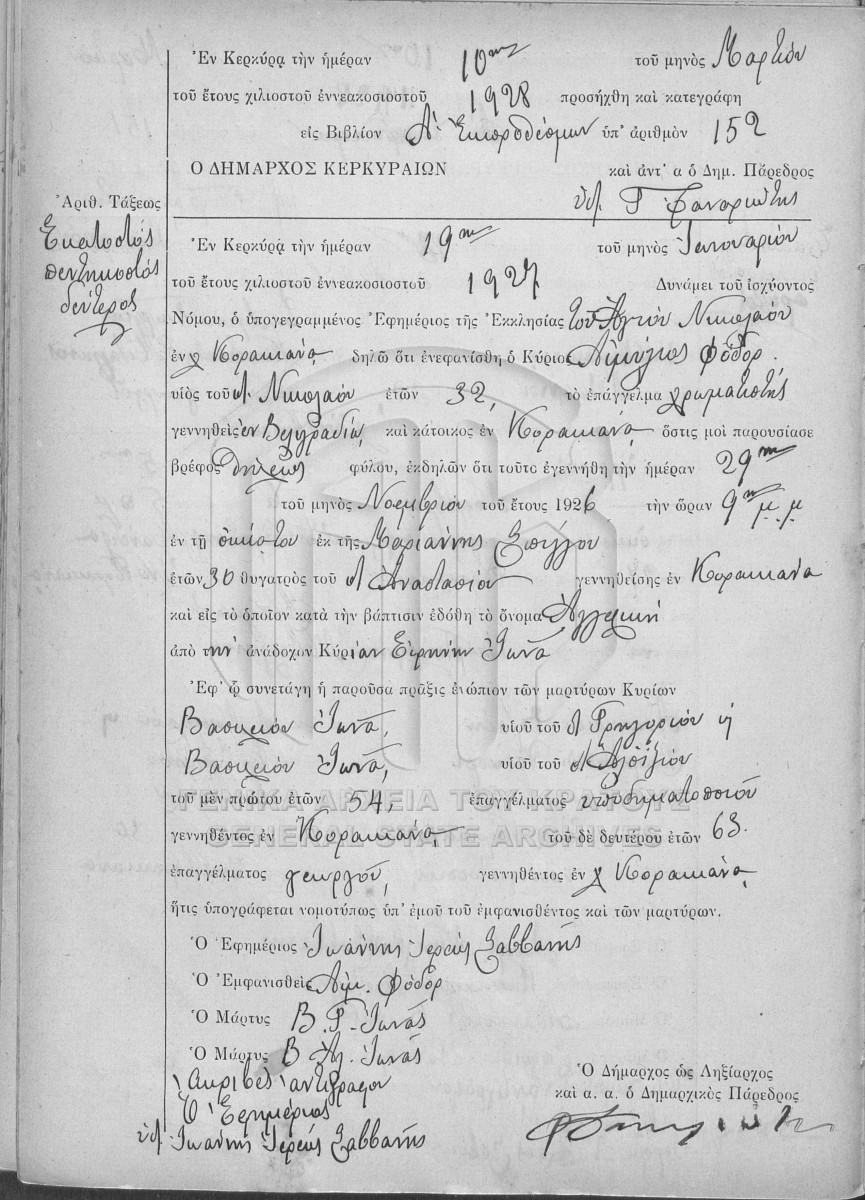 Ἐν Κερκύρᾳ τὴν ἡμέραν 10ην τοῦ μηνὸς Μαρτίου
τοῦ ἔτους χιλιοστοῦ ἐννεακοσιοστοῦ 1928 προσήχθη καὶ κατεγράφη
εἰς Βιβλίον Α' Ἐκπροθέσμων ὑπ' ἀριθμὸν 152
Ο ΔΗΜΑΡΧΟΣ ΚΕΡΚΥΡΑΙΩΝ καὶ ἀντ' α ὁ Δημ. Πάρεδρος
Γ Φαναριώτης
Ἀριθ. Τάξεως
Ἑκατοστός
πεντηκοστός
δεύτερος
Ἐν Κερκύρᾳ τὴν ἡμέραν 19ην τοῦ μηνὸς Ἰανουαρίου
τοῦ ἔτους χιλιοστοῦ ἐννεακοσιοστοῦ 1927 Δυνάμει τοῦ ἰσχύοντος
Νόμου, ὁ ὑπογεγραμμένος Ἐφημέριος τῆς Ἐκκλησίας τοῦ Ἁγίου Νικολάου
ἐν χ Κορακιάνα δηλῶ ὅτι ἐνεφανίσθη ὁ Κύριος Αἰμίλιος Φόδορ.
υἱὸς τοῦ Νικολάου ἐτῶν 32, τὸ ἐπάγγελμα χρωματιστής
γεννηθεὶς ἐν Βελιγραδίῳ καὶ κάτοικος ἐν Κορακιάνα ὅστις μοὶ παρουσίασε
βρέφος θήλεως φύλου, ἐκδηλῶν ὅτι τοῦτο ἐγεννήθη τὴν ἡμέραν 29ην
τοῦ μηνὸς Νοεμβρίου τοῦ ἔτους 1926 τὴν ὥραν 9ην μ.μ.
ἐν τῇ οἰκίᾳ του ἐκ τῆς Μαριάννης Σπίγγου
ἐτῶν 30 θυγατρὸς τοῦ Ἀναστασίου γεννηθείσης ἐν Κορακιάνα
καὶ εἰς τὸ ὁποῖον κατὰ τὴν βάπτισιν ἐδόθη τὸ ὄνομα Ἀγγελική
ἀπὸ τὴν ἀνάδοχον Κυρίαν Εἰρήνην Ἰωνᾶ
Ἐφ' ᾧ συνετάγη ἡ παροῦσα πρᾶξις ἐνώπιον τῶν μαρτύρων Κυρίων
Βασιλείου Ἰωνᾶ, υἱοῦ τοῦ Γρηγορίου ἢ
Βασιλείου Ἰωνᾶ, υἱοῦ τοῦ Ἀλοϊζίου
τοῦ μὲν πρώτου ἐτῶν 54, ἐπαγγέλματος ὑποδηματοποιοῦ
ΓΕΝΙΚΑ ΑΡΧΕΙΑ ΤΟΥ ΚΡΑΤΟΥΣ
γεννηθέντος ἐν Κορακιάνα, τοῦ δὲ δευτέρου ἐτῶν 63.
GENERAL STATE ARCHIVES
ἐπαγγέλματος γεωργοῦ, γεννηθέντος ἐν χ Κορακιάνα,
ἥτις ὑπογράφεται νομοτύπως ὑπ' ἐμοῦ τοῦ ἐμφανισθέντος καὶ τῶν μαρτύρων.
Ὁ Ἐφημέριος Ἰωάννης Ἱερεὺς Σαββανής
Ὁ Ἐμφανισθεὶς Αἰμ. Φόδορ
Ὁ Μάρτυς Β. Γ. Ἰωνᾶς
Ὁ Μάρτυς Β Ἀλ. Ἰωνᾶς
Ἀκριβὲς ἀντίγραφον
Ὁ Ἐφημέριος
Ἰωάννης Ἱερεὺς Σαββανής
Ὁ Δήμαρχος ὡς Ληξίαρχος
καὶ α. α. ὁ Δημαρχικὸς Πάρεδρος